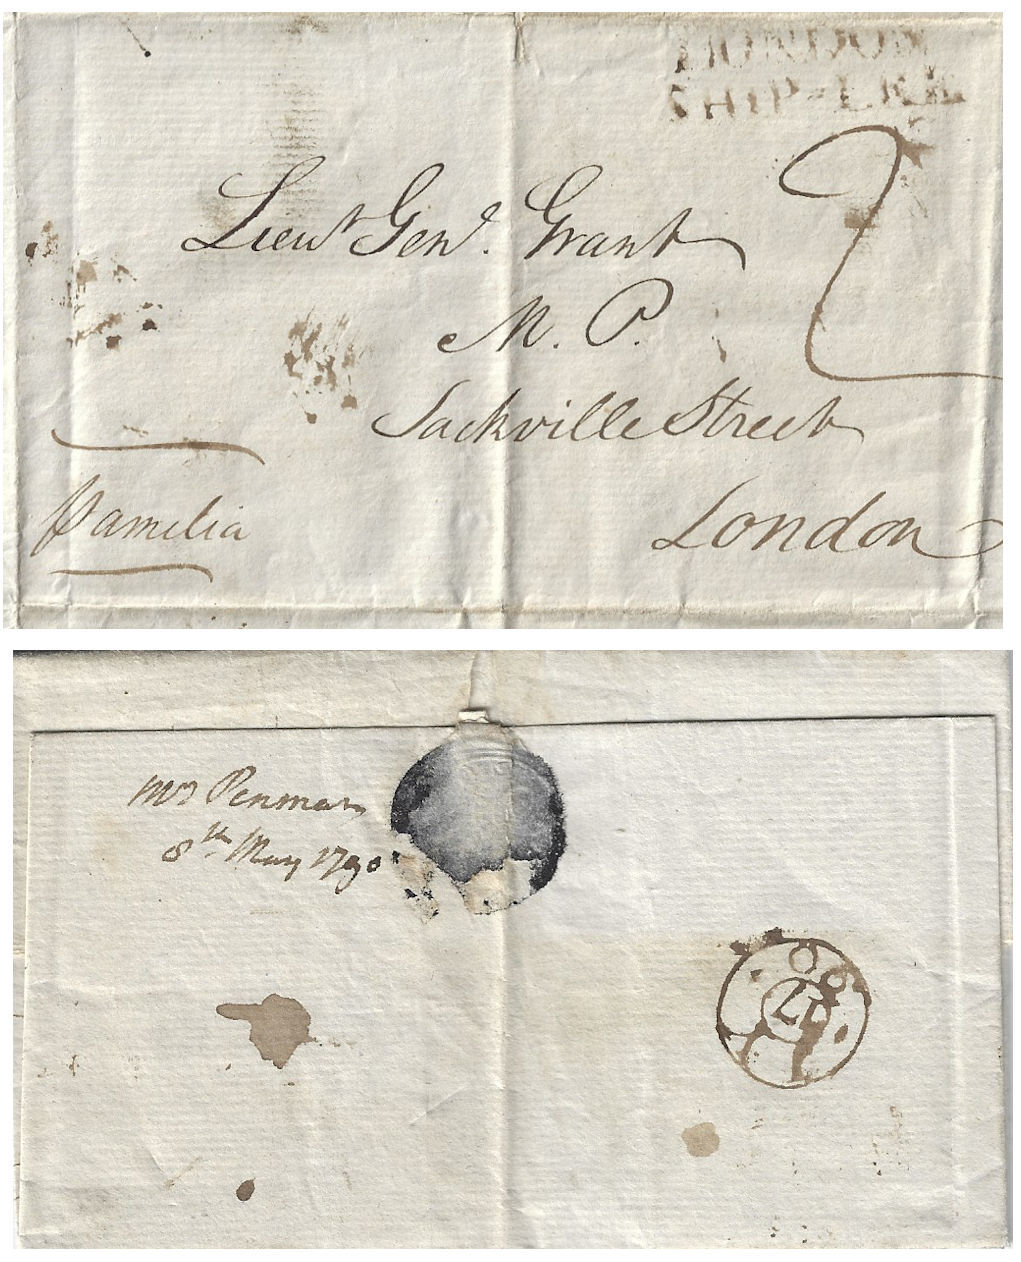 LONDON
SHIP-LRE
2
Lieut Genl. Grant
M. P.
Sackville Street
London
Pamelia
Mr Penman
8th May 1790